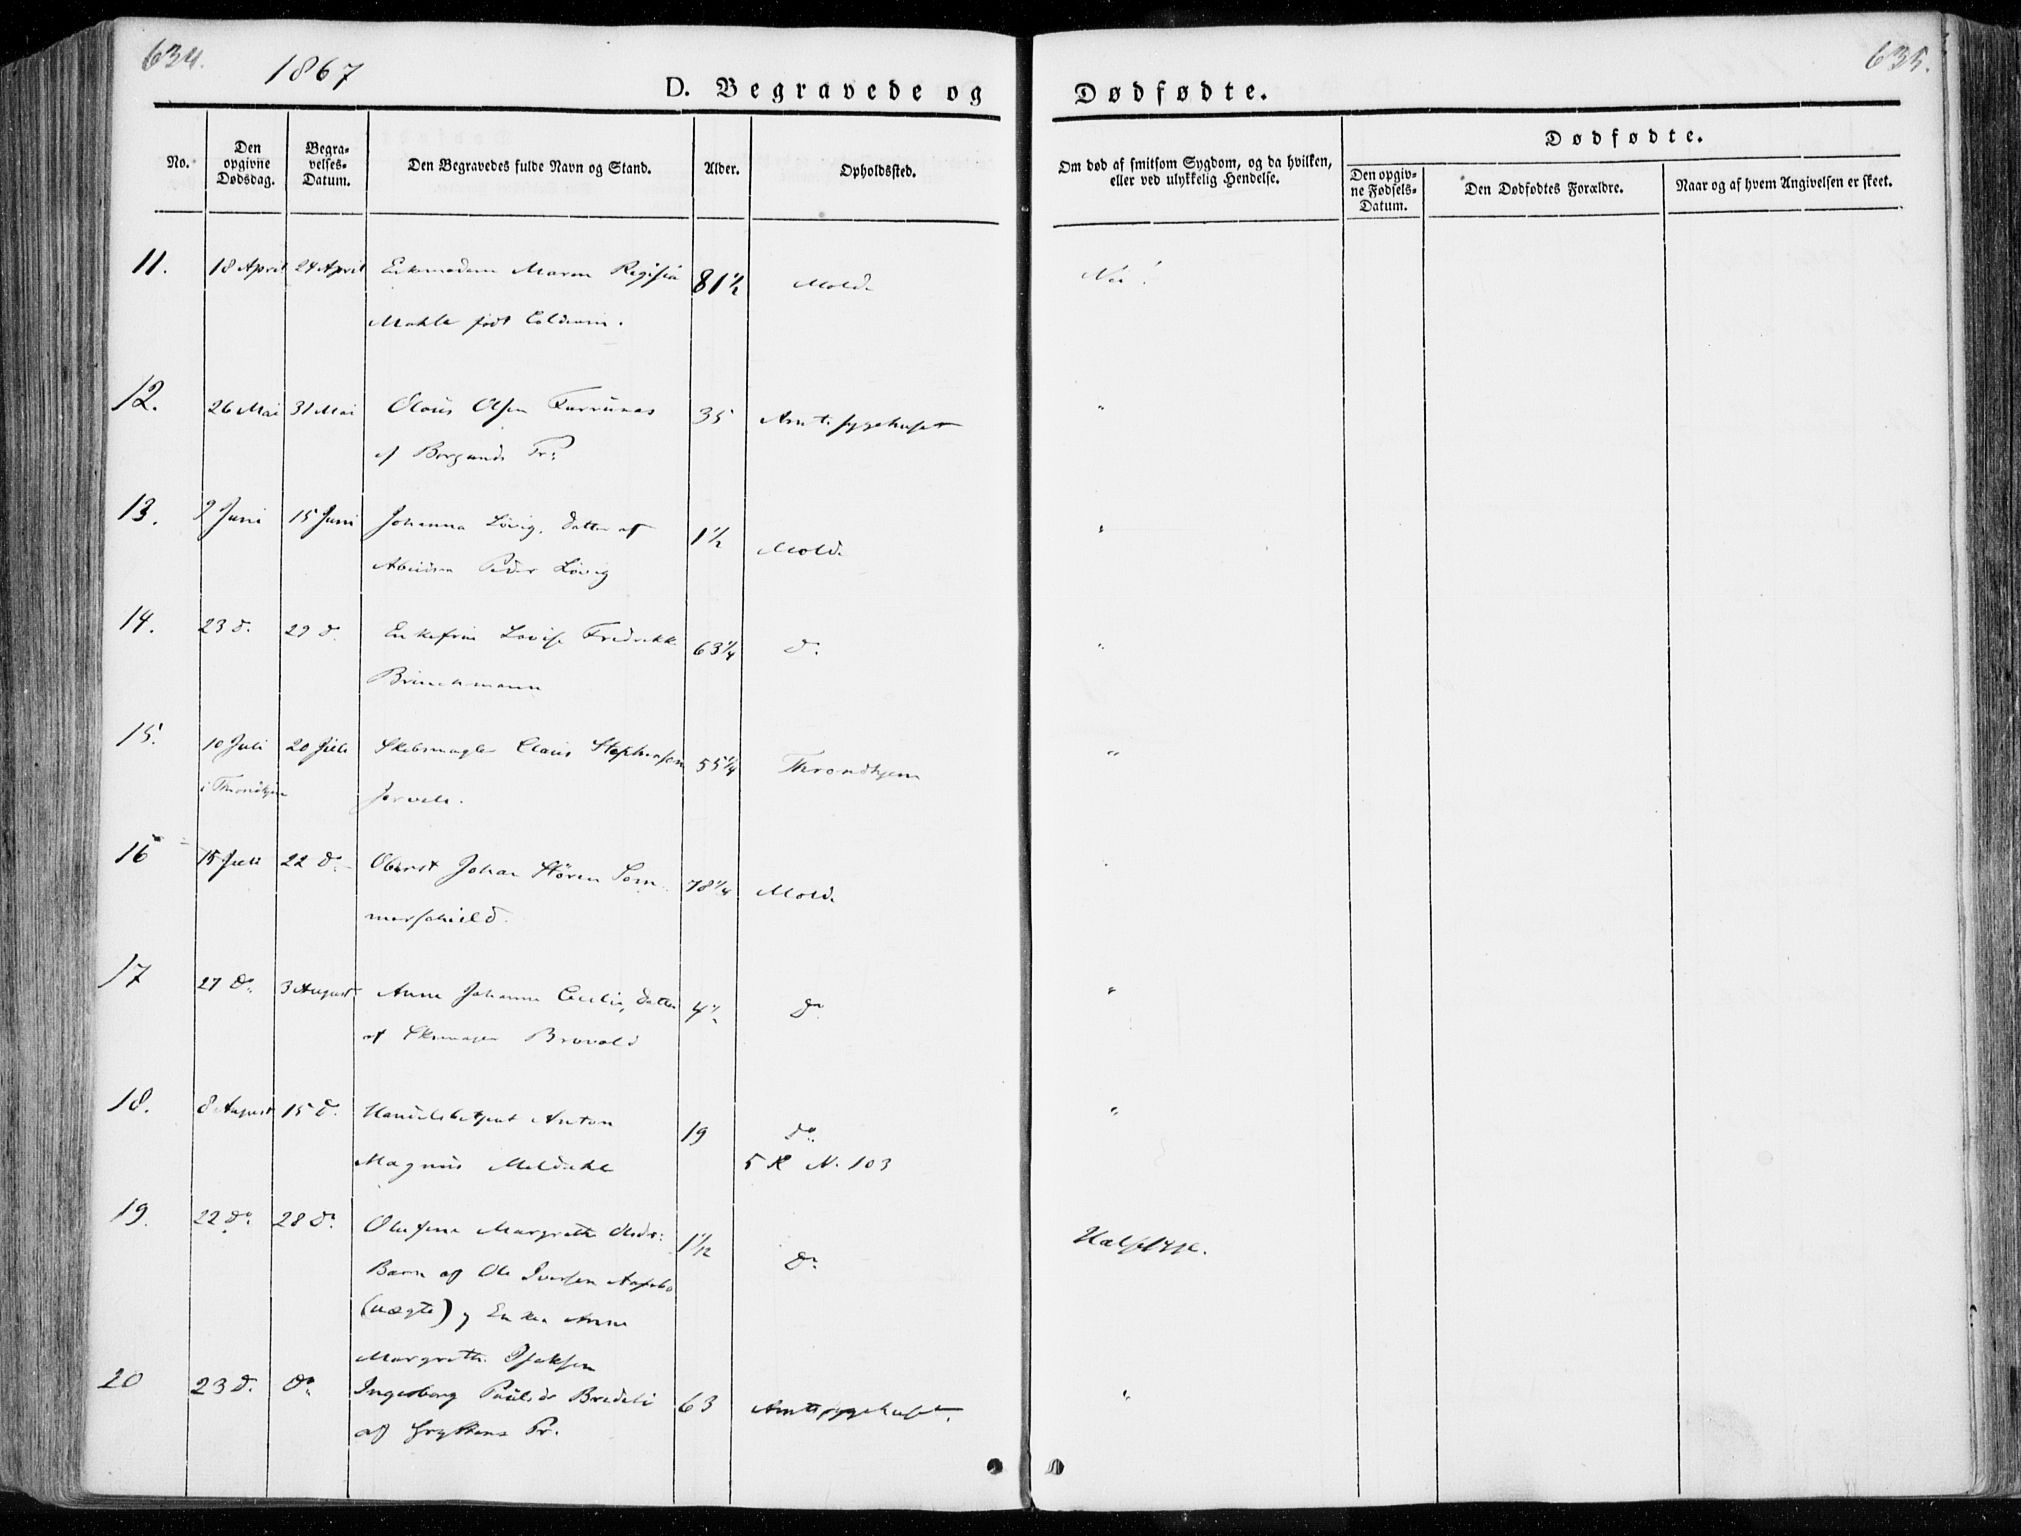 634.
1867
D. Begravede og
Dødfødte.
635.
No.
Den opgivne Dødsdag.
Begravelses-Datum.
Den Begravedes fulde Navn og Stand.
Alder.
Opholdssted.
Om død af smitsom Sygdom, og da hvilken, eller ved ulykkelig Hendelse.
Dødfødte.
Den opgivne Fødsels-Datum.
Den Dødfødtes Forældre.
Naar og af hvem Angivelsen er skeet.
11. 18 April 24 April Enkemadam Maren Regisia 81½ Molde Nei!
Mahle født
12. 26 Mai 31 Mai Olaus Olsen 35 Amtssygehuset "
af Borgunds Pr:
13. 9 Juni 15 Juni Johanna Løvig, Datter af 1½ Molde "
Peder Løvig
14. 23 d. 29 d. Enkefrue Lovise Fredrikke 63¼ do. "
Brinchmann
15. 10 Juli 20 Juli Skibsmægler Claus Stephensen 55¼ Throndhjem "
i Throndhjem
16 15 Juli 22 do. Oberst Johan Støren Som- 78¼ Molde "
merschield.
17 27 do. 3 August Anne Johanne Cecilie, Datter do. "
af Skomager Brovold
18. 8 August 15 d. Handelsbetjent Anton 19 do. "
Magnus Meldahl 5 R N. 103
19. 22 do. 28 do. Olufine Margrethe Olsdr: 1 1/12 do. Halssyge.
Barn af Ole Iversen
(uægte) og Enken Anne
Margrethe Isaksen
20 23 d. do. Ingeborg Paulsdr Bredeli 63 Amtssygehuset. "
af Gryttens Pr.